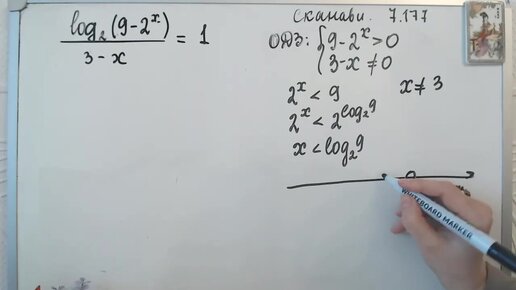 log₂(9-2ˣ)
3-x
= 1
Сканави. 7.177
ОДЗ: { 9-2ˣ>0
3-x≠0
2ˣ < 9
x≠3
2ˣ < 2^log₂9
x < log₂9
WHITEBOARD MARKER